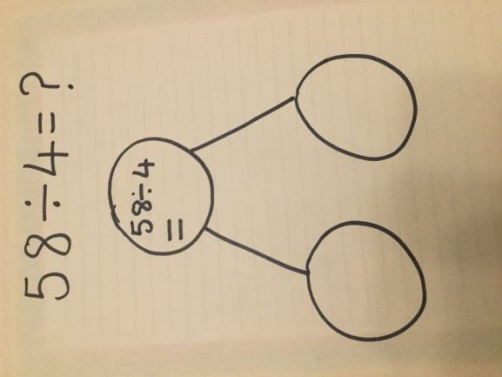 58÷4=?
58÷4
=